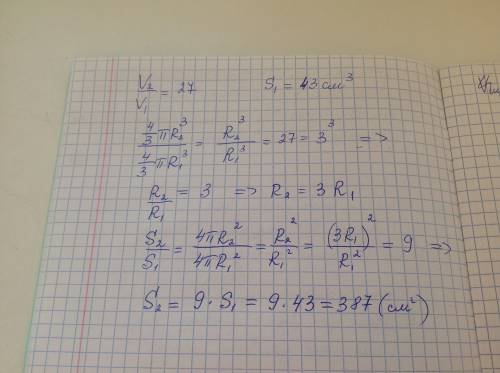 V₂/V₁ = 27 S₁ = 43 см³
(4/3 πR₂³)/(4/3 πR₁³) = R₂³/R₁³ = 27 = 3³ =>
R₂/R₁ = 3 => R₂ = 3R₁
S₂/S₁ = 4πR₂²/4πR₁² = R₂²/R₁² = (3R₁)²/R₁² = 9 =>
S₂ = 9·S₁ = 9·43 = 387 (см²)